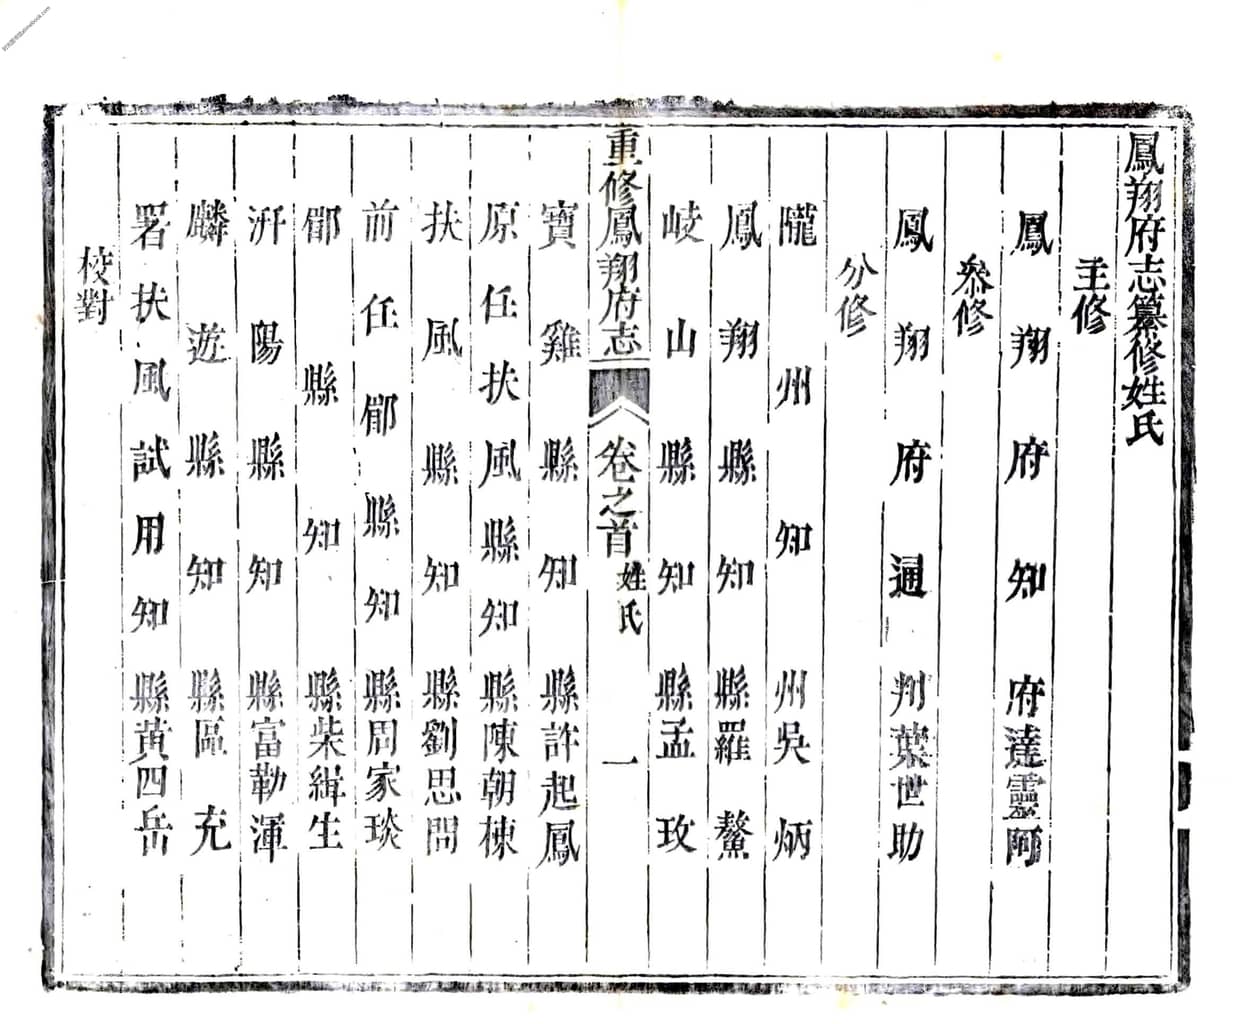 鳳翔府志纂修姓氏
主修
鳳翔府知府達靈阿
叅修
鳳翔府通判葉世助
分修
隴州知州吳炳
鳳翔縣知縣羅鰲
岐山縣知縣孟玫
重修鳳翔府志 卷之首 姓氏 一
寶雞縣知縣許起鳳
原任扶風縣知縣陳朝棟
扶風縣知縣劉思問
前任郿縣知縣周家琰
郿縣知縣柴緝生
汧陽縣知縣富勒渾
麟遊縣知縣區充
署扶風試用知縣黃四岳
校對